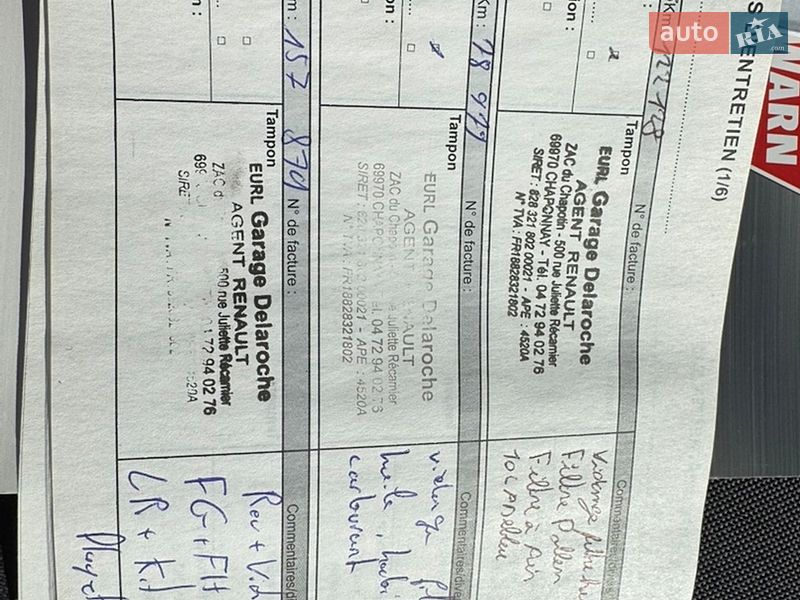 auto RIA .com
WARN
ENTRETIEN (1/6)
Km : 122 128
Tampon
N° de facture :
EURL Garage Delaroche
AGENT RENAULT
ZAC du Chapotin - 500 rue Juliette Récamier
69970 CHAPONNAY - Tél. 04 72 94 02 76
SIRET : 828 321 802 00021 - APE : 4520A
N° TVA : FR18828321802
Vidange
Filtre Pollen
Filtre à Air
Km : 78 979
Tampon
N° de facture :
EURL Garage Delaroche
AGENT RENAULT
ZAC du Chapotin
Juliette Récamier
69970 CHAPON
04 72 94 02 76
SIRET : 82
00021 - APE : 4520A
N° TVA : FR18828321802
Commentaires/dive
vidange
huile
carburant
Km : 157 879
Tampon
N° de facture :
EURL Garage Delaroche
AGENT RENAULT
ZAC d
500 rue Juliette Récamier
72 94 02 76
SIRET
4520A
Commentaires/di
Rev + Vid
FG + FH
LR + Kit